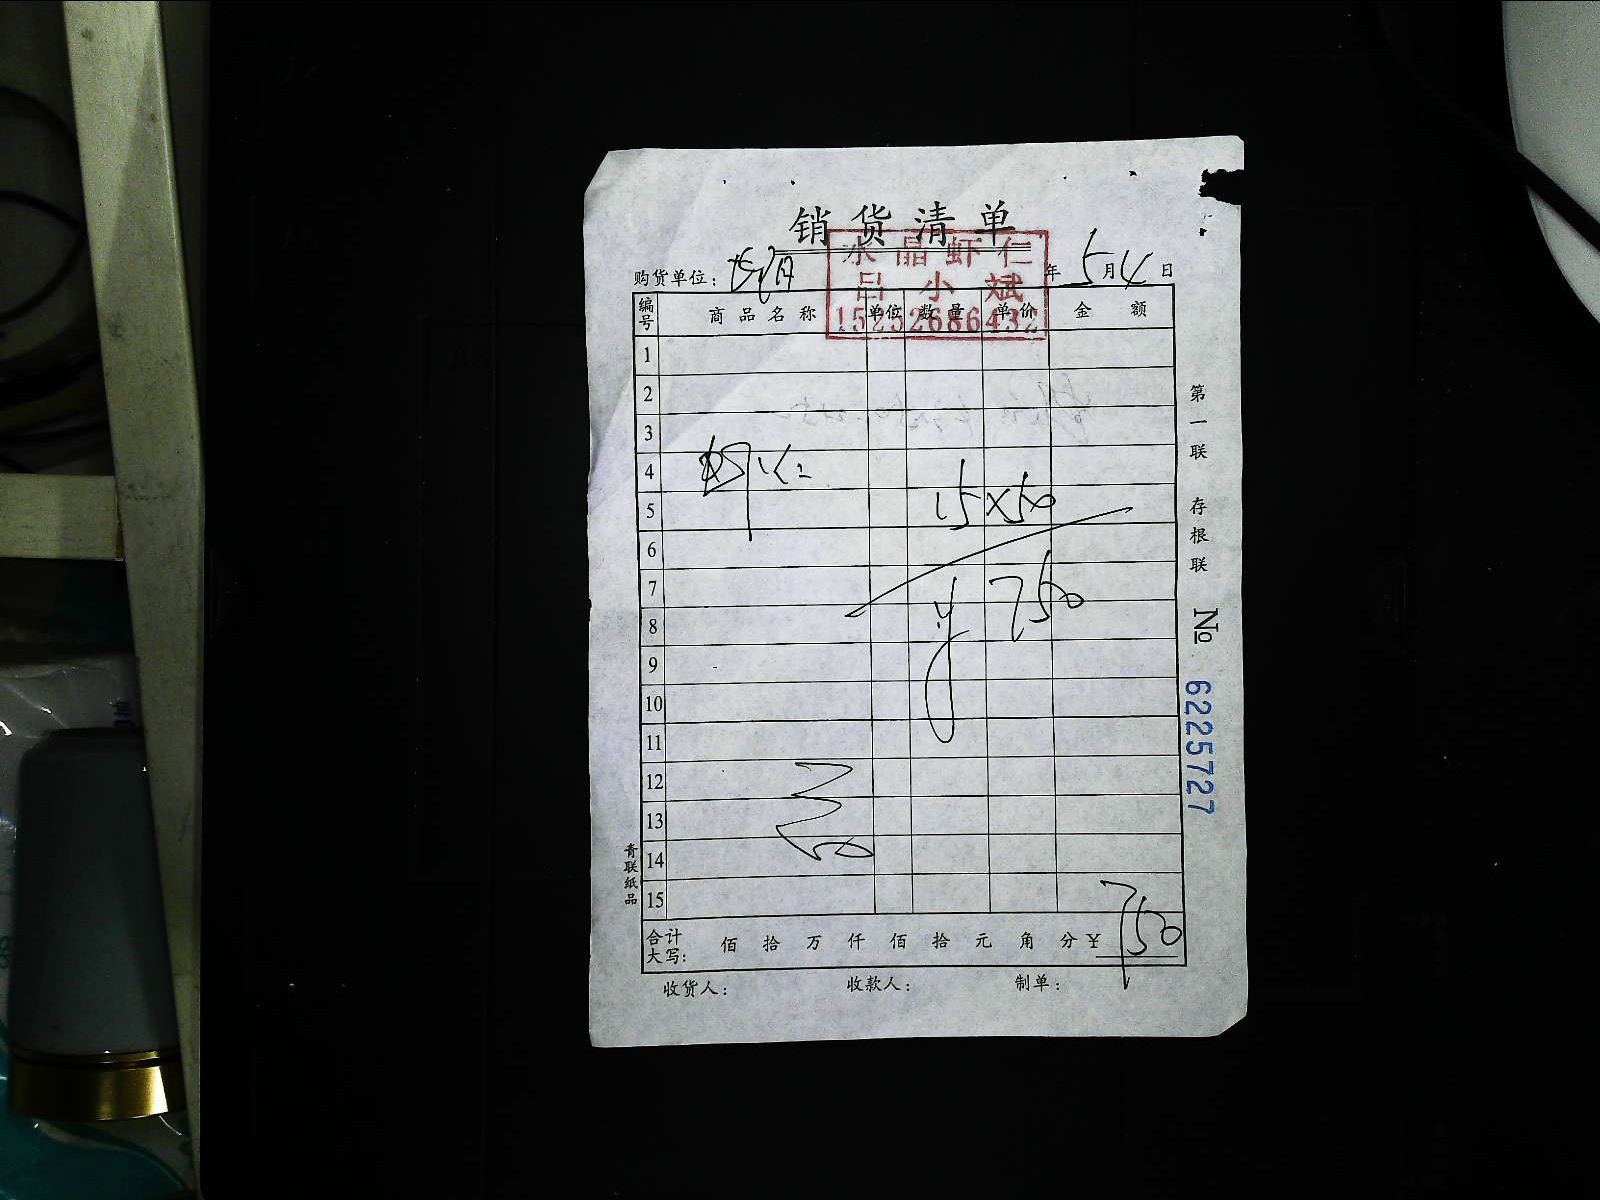 销货清单
水晶虾仁
吕小斌
15252686432
购货单位: 年 5月4日
编号 商品名称 单位 数量 单价 金额
1
2
3
4
15×50
5
6
7
￥750
8
9
10
11
12
13
14
15
合计大写: 佰 拾 万 仟 佰 拾 元 角 分 ￥ 750
收货人: 收款人: 制单:
第一联 存根联
№ 6225727
青联纸品